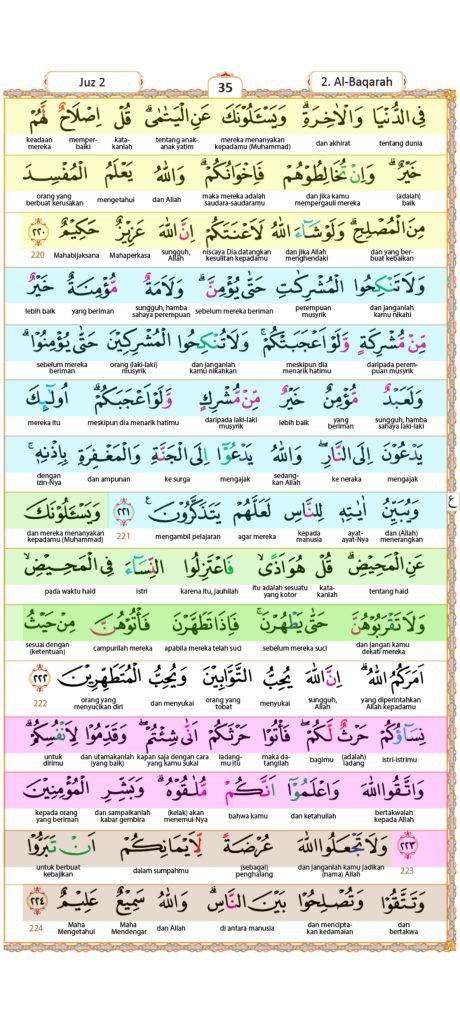 Juz 2
35
2. Al-Baqarah
فِى الدُّنْيَا وَالْاٰخِرَةِۗ وَيَسْـَٔلُوْنَكَ عَنِ الْيَتٰمٰىۗ قُلْ اِصْلَاحٌ لَّهُمْ
tentang dunia dan akhirat mereka menanyakan kepadamu (Muhammad) tentang anak-anak yatim kata-kanlah memper-baiki keadaan mereka
خَيْرٌۗ وَاِنْ تُخَالِطُوْهُمْ فَاِخْوَانُكُمْۗ وَاللّٰهُ يَعْلَمُ الْمُفْسِدَ
(adalah) baik dan jika kamu mempergauli mereka maka mereka adalah saudara-saudaramu dan Allah mengetahui orang yang berbuat kerusakan
مِنَ الْمُصْلِحِۗ وَلَوْ شَاۤءَ اللّٰهُ لَاَعْنَتَكُمْۗ اِنَّ اللّٰهَ عَزِيْزٌ حَكِيْمٌ ٢٢٠
dan yang ber-buat kebaikan dan jika Allah menghendaki niscaya Dia datangkan kesulitan kepadamu sungguh, Allah Mahaperkasa Mahabijaksana 220
وَلَا تَنْكِحُوا الْمُشْرِكٰتِ حَتّٰى يُؤْمِنَّۗ وَلَاَمَةٌ مُّؤْمِنَةٌ خَيْرٌ
dan janganlah kamu nikahi perempuan musyrik sebelum mereka beriman sungguh, hamba sahaya perempuan yang beriman lebih baik
مِّنْ مُّشْرِكَةٍ وَّلَوْ اَعْجَبَتْكُمْۚ وَلَا تُنْكِحُوا الْمُشْرِكِيْنَ حَتّٰى يُؤْمِنُوْاۗ
daripada perem-puan musyrik meskipun dia menarik hatimu dan janganlah kamu nikahkan orang (laki-laki) musyrik sebelum mereka beriman
وَلَعَبْدٌ مُّؤْمِنٌ خَيْرٌ مِّنْ مُّشْرِكٍ وَّلَوْ اَعْجَبَكُمْۗ اُولٰۤىِٕكَ
sungguh, hamba sahaya laki-laki yang beriman lebih baik daripada laki-laki musyrik meskipun dia menarik hatimu mereka itu
يَدْعُوْنَ اِلَى النَّارِۖ وَاللّٰهُ يَدْعُوْٓا اِلَى الْجَنَّةِ وَالْمَغْفِرَةِ بِاِذْنِهٖۚ
mengajak ke neraka sedang-kan Allah mengajak ke surga dan ampunan dengan izin-Nya
وَيُبَيِّنُ اٰيٰتِهٖ لِلنَّاسِ لَعَلَّهُمْ يَتَذَكَّرُوْنَ ࣖ ٢٢١ وَيَسْـَٔلُوْنَكَ
ع
dan (Allah) menerangkan ayat-ayat-Nya kepada manusia agar mereka mengambil pelajaran 221 dan mereka menanyakan kepadamu (Muhammad)
عَنِ الْمَحِيْضِۗ قُلْ هُوَ اَذًىۙ فَاعْتَزِلُوا النِّسَاۤءَ فِى الْمَحِيْضِۙ
tentang haid kata-kanlah itu adalah sesuatu yang kotor karena itu, jauhilah istri pada waktu haid
وَلَا تَقْرَبُوْهُنَّ حَتّٰى يَطْهُرْنَۚ فَاِذَا تَطَهَّرْنَ فَأْتُوْهُنَّ مِنْ حَيْثُ
dan jangan kamu dekati mereka sebelum mereka suci apabila mereka telah suci campurilah mereka sesuai dengan (ketentuan)
اَمَرَكُمُ اللّٰهُۗ اِنَّ اللّٰهَ يُحِبُّ التَّوَّابِيْنَ وَيُحِبُّ الْمُتَطَهِّرِيْنَ ٢٢٢
yang diperintahkan Allah kepadamu sungguh, Allah menyukai orang yang tobat dan menyukai orang yang menyucikan diri 222
نِسَاۤؤُكُمْ حَرْثٌ لَّكُمْۖ فَأْتُوْا حَرْثَكُمْ اَنّٰى شِئْتُمْۖ وَقَدِّمُوْا لِاَنْفُسِكُمْۗ
istri-istrimu (adalah) ladang bagimu maka da-tangilah ladang-mu itu kapan saja dengan cara yang kamu sukai dan utamakanlah (yang baik) untuk dirimu
وَاتَّقُوا اللّٰهَ وَاعْلَمُوْٓا اَنَّكُمْ مُّلٰقُوْهُۗ وَبَشِّرِ الْمُؤْمِنِيْنَ
bertakwalah kepada Allah dan ketahuilah bahwa kamu (kelak) akan menemui-Nya dan sampaikanlah kabar gembira kepada orang yang beriman
٢٢٣ وَلَا تَجْعَلُوا اللّٰهَ عُرْضَةً لِّاَيْمَانِكُمْ اَنْ تَبَرُّوْا
223 dan janganlah kamu jadikan (nama) Allah (sebagai) penghalang dalam sumpahmu untuk berbuat kebajikan
وَتَتَّقُوْا وَتُصْلِحُوْا بَيْنَ النَّاسِۗ وَاللّٰهُ سَمِيْعٌ عَلِيْمٌ ٢٢٤
dan bertakwa dan mencipta-kan kedamaian di antara manusia dan Allah Maha Mendengar Maha Mengetahui 224